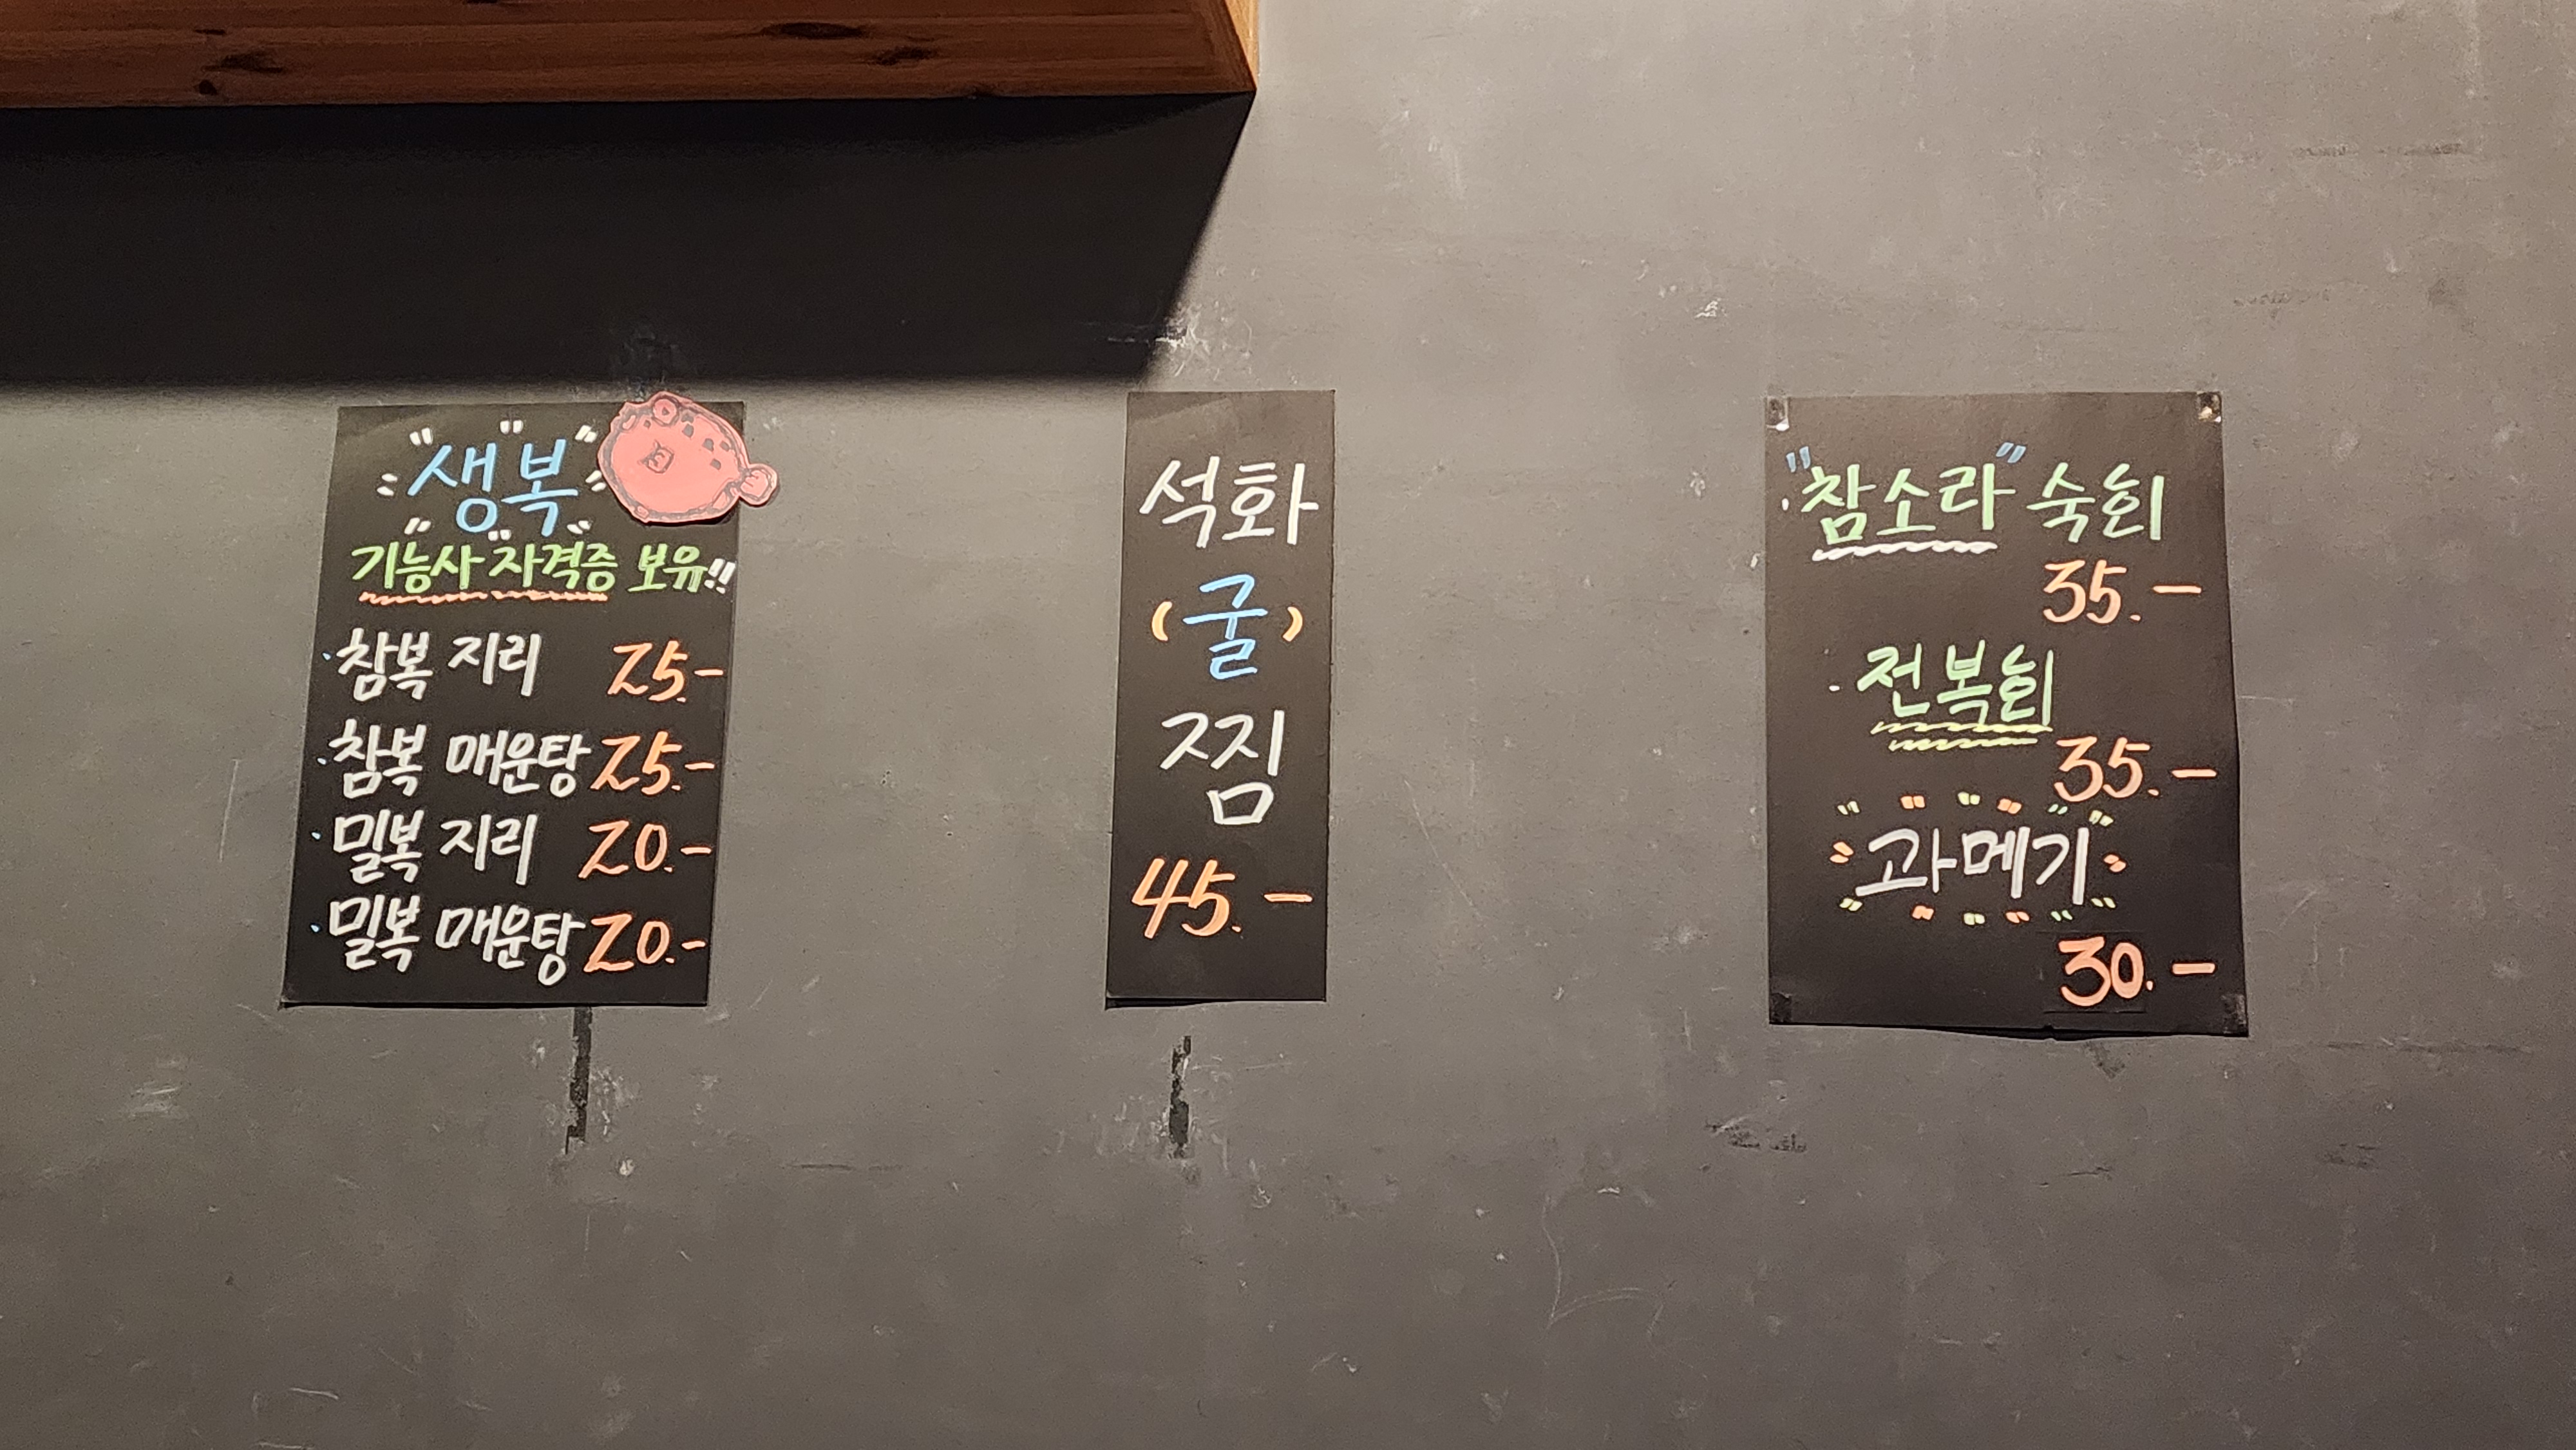 "생복"
기능사 자격증 보유!!
·참복 지리 25.-
·참복 매운탕 25.-
·밀복 지리 20.-
·밀복 매운탕 20.-
석화
(굴)
찜
45.-
·"참소라" 숙회
35.-
·전복회
35.-
과메기
30.-